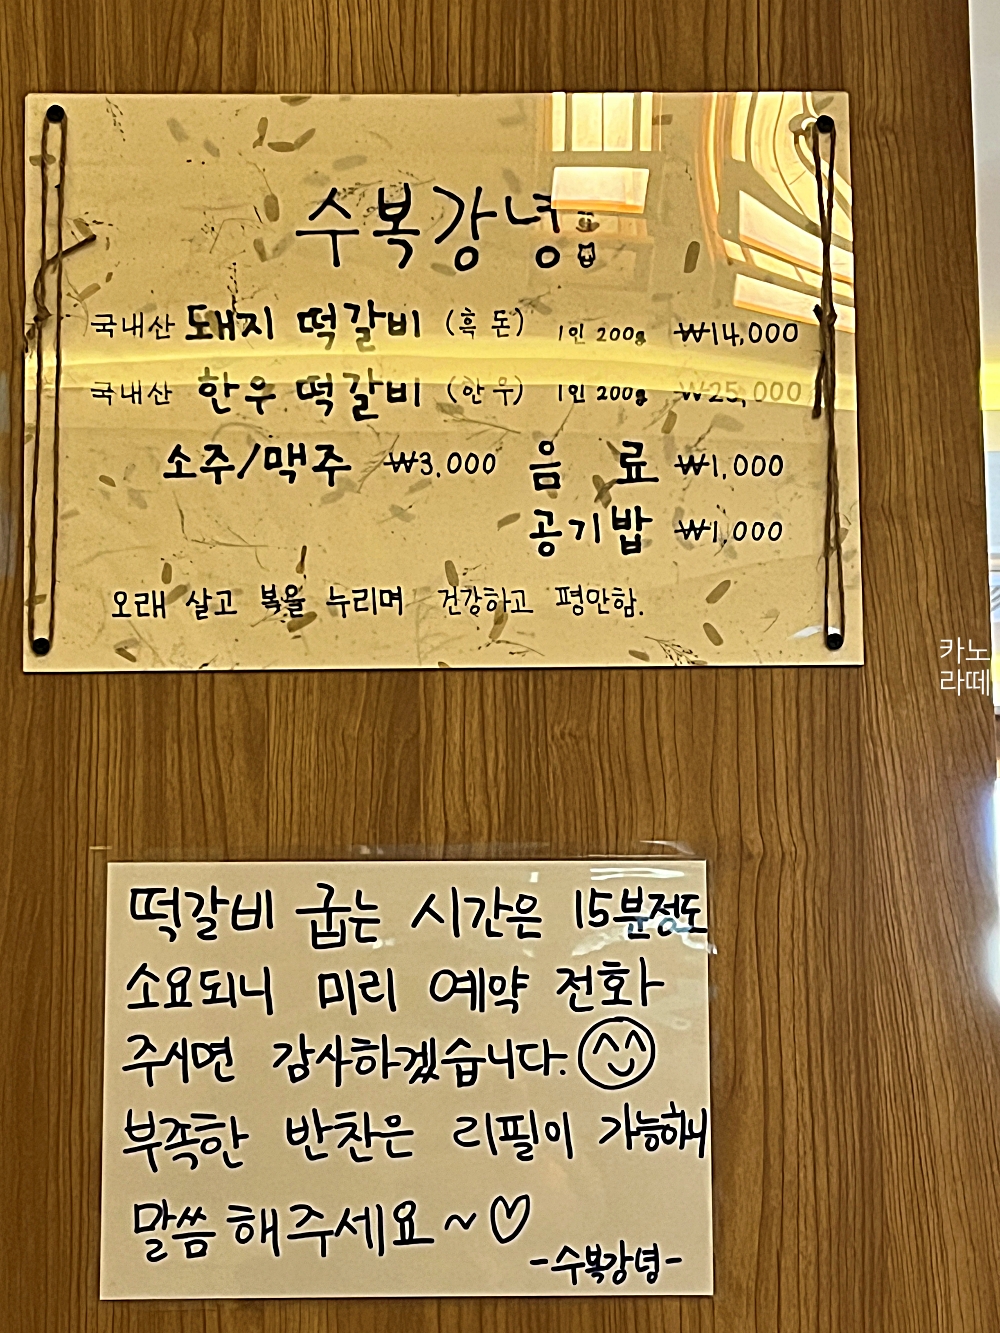 수복강녕
국내산 돼지 떡갈비 (흑돈) 1인 200g ₩14,000
국내산 한우 떡갈비 (한우) 1인 200g ₩25,000
소주/맥주 ₩3,000 음 료 ₩1,000
공기밥 ₩1,000
오래 살고 복을 누리며 건강하고 평안함.
카노
라떼
떡갈비 굽는 시간은 15분정도
소요되니 미리 예약 전화
주시면 감사하겠습니다.
부족한 반찬은 리필이 가능하니
말씀해주세요~♡
-수복강녕-